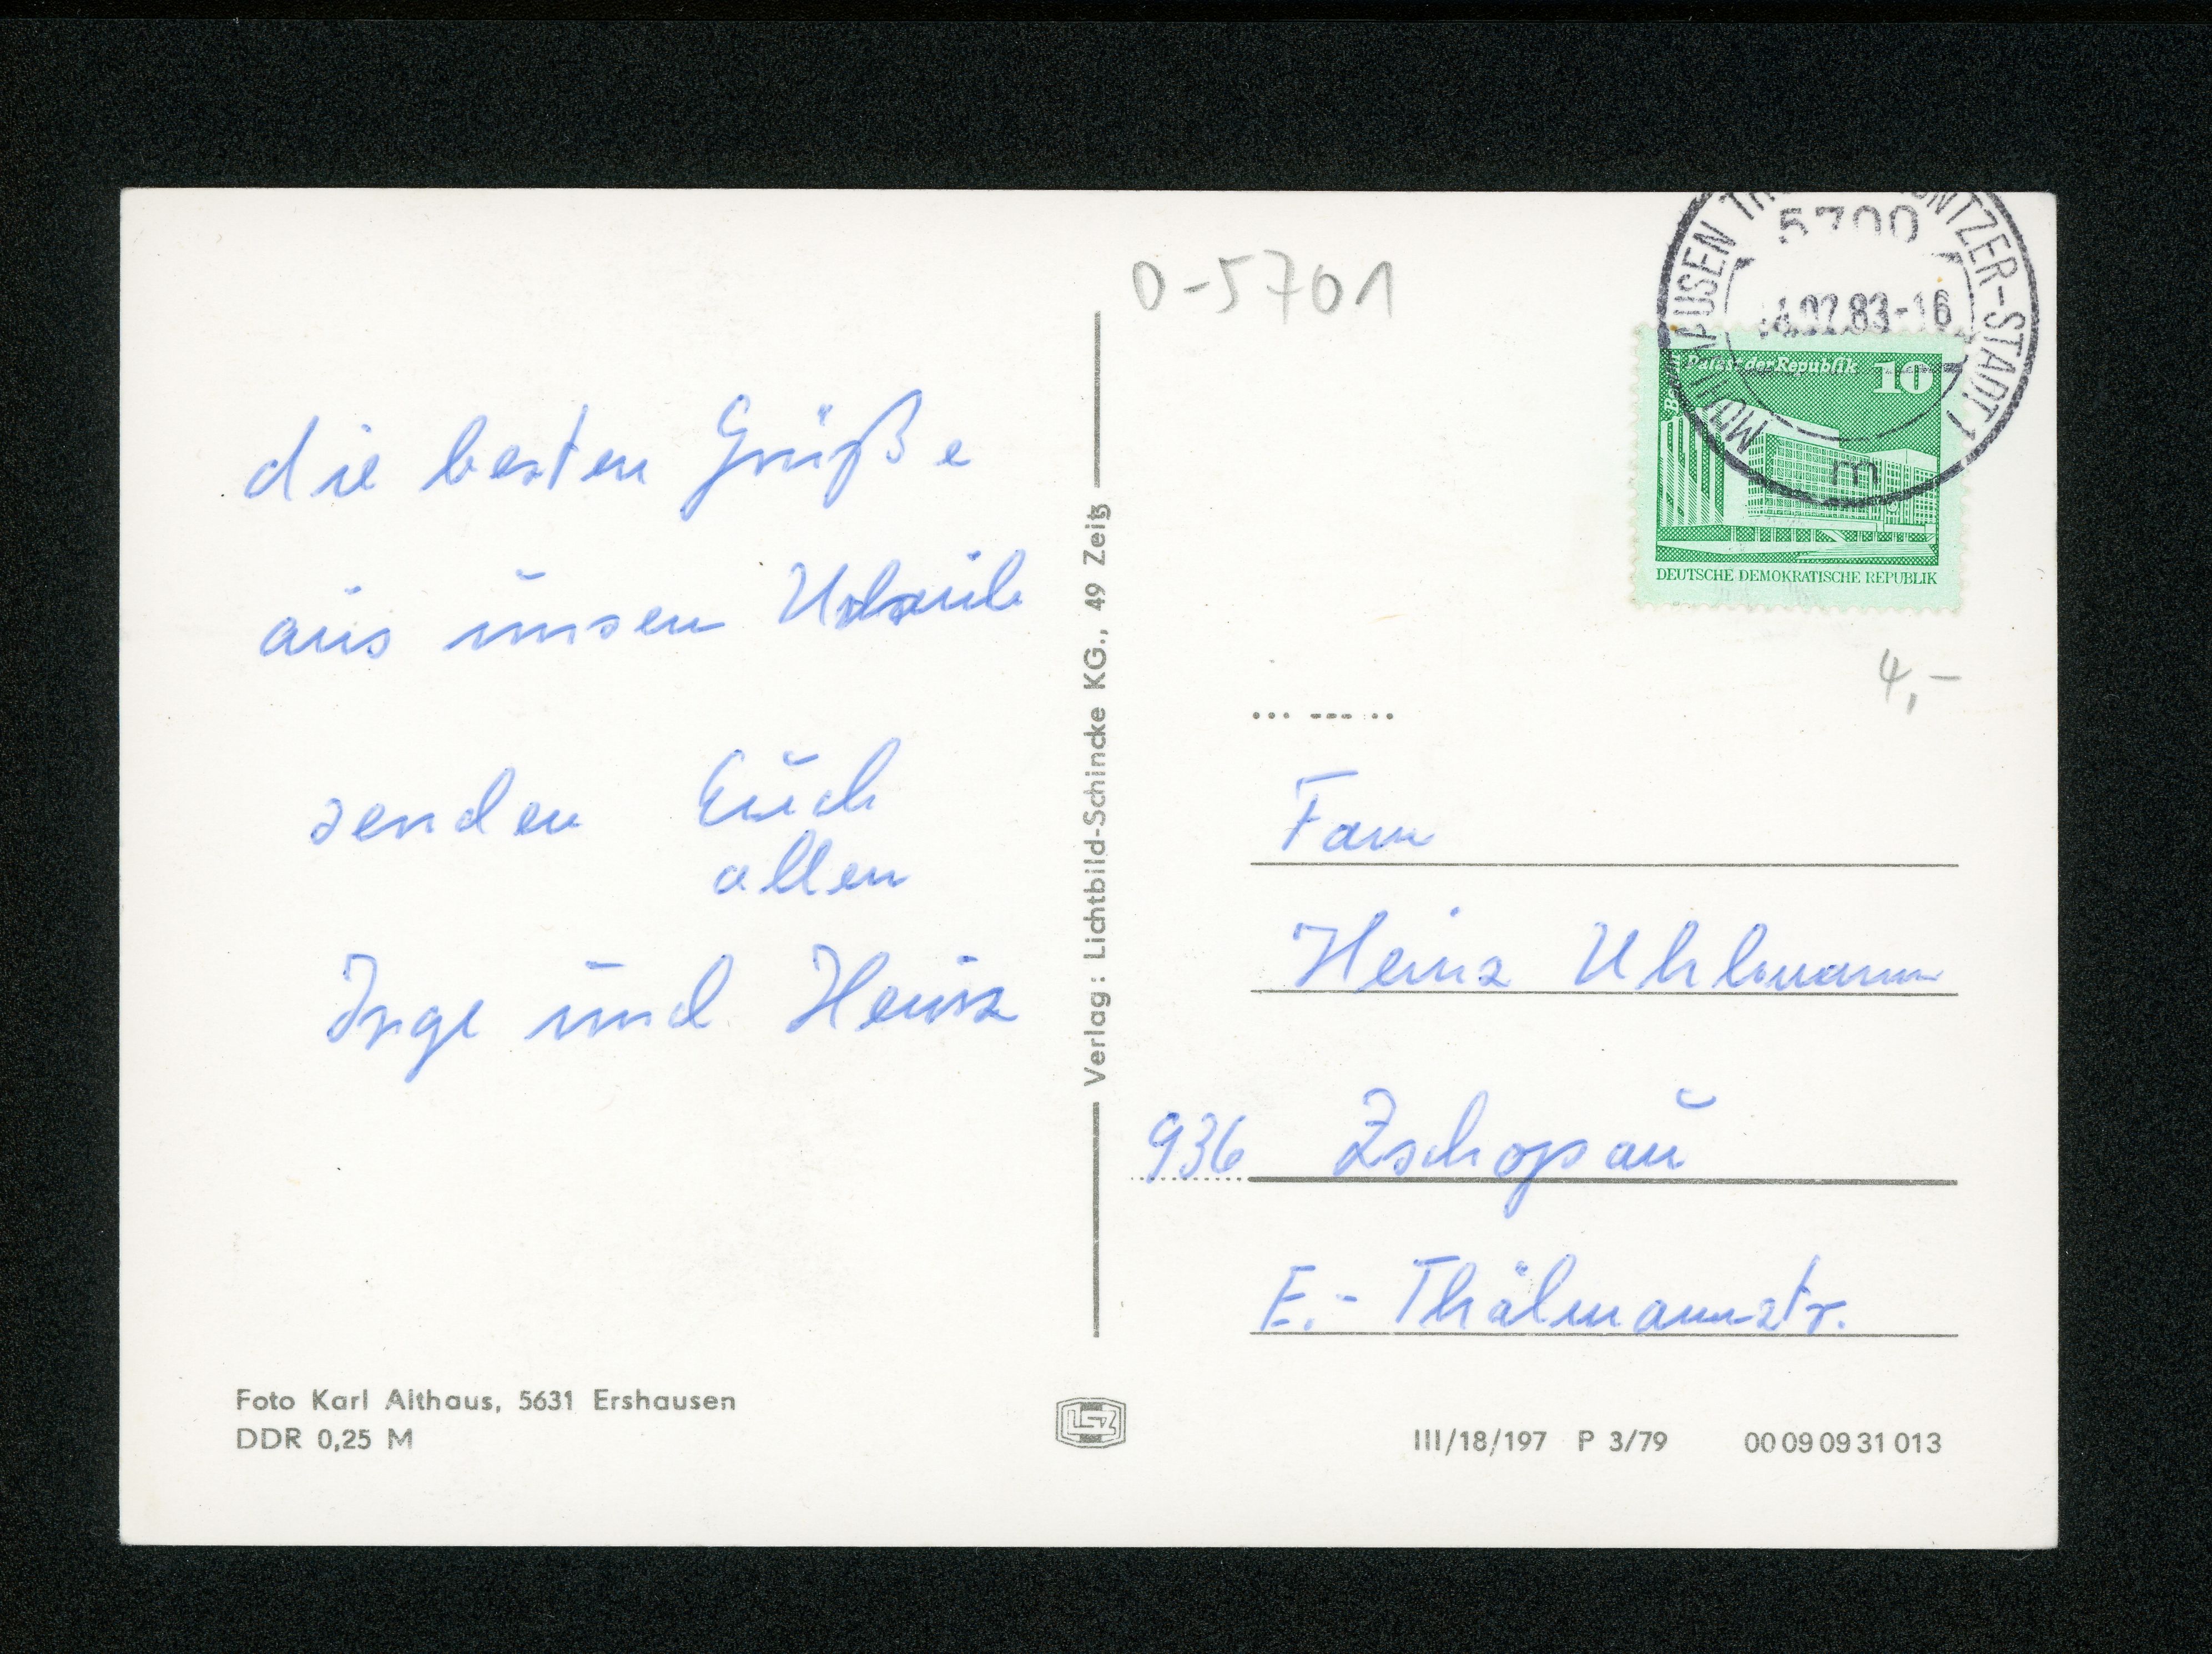 die besten Grüße
aus unsen Urlaub
senden Euch
allen
Inge und Heinz
Foto Karl Althaus, 5631 Ershausen
DDR 0,25 M
Verlag: Lichtbild-Schincke KG., 49 Zeitz
LSZ
0-5701
5700
.02.83-16
MÜHLHAUSEN THOMAS-MÜNTZER-STADT 1
m
Palast der Republik 10
DEUTSCHE DEMOKRATISCHE REPUBLIK
4,-
Fam
Heinz Uhlmann
936 Zschopau
E.-Thälmannstr.
III/18/197 P 3/79 00 09 09 31 013